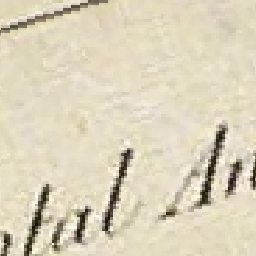 ntal An